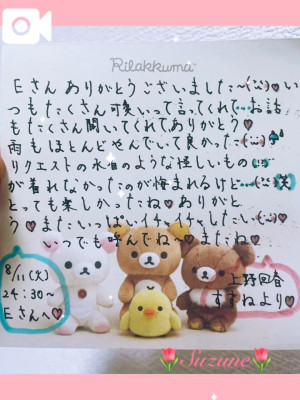 Rilakkuma
Eさんありがとうございました〜(¨)♥い
つもたくさん可愛いって言ってくれて…お話
もたくさん聞いてくれてありがとう♥
雨もほとんどやんでいて良かった(¨)☂
リクエストの水着のような怪しいもの
が着れなかったのが悔まれるけど…(¨)笑
とっても楽しかったね♥ありがと
う♥またいっぱいイチャイチャしたい(¨)♥
いつでも呼んでね〜♥またね♥
8/11(火)
24:30〜
Eさんへ♥
上野回春
すずねより♥
🌷Suzune🌷